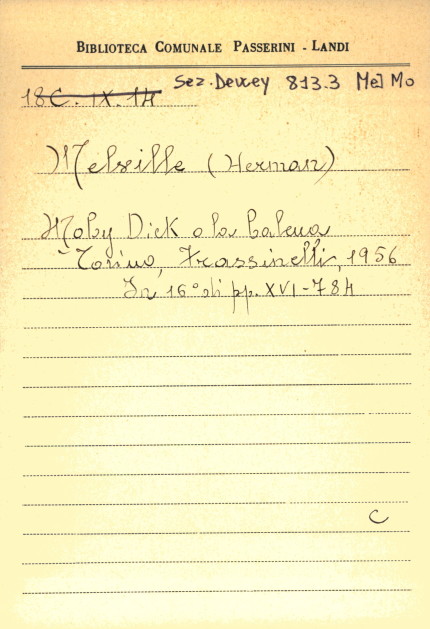 BIBLIOTECA COMUNALE PASSERINI - LANDI
18C.IX.14 Sez. Dewey 813.3 Mel Mo
Melville (Herman)
Moby Dick o la balena
- Torino, Frassinelli, 1956
In 16° di pp. XVI-784
C